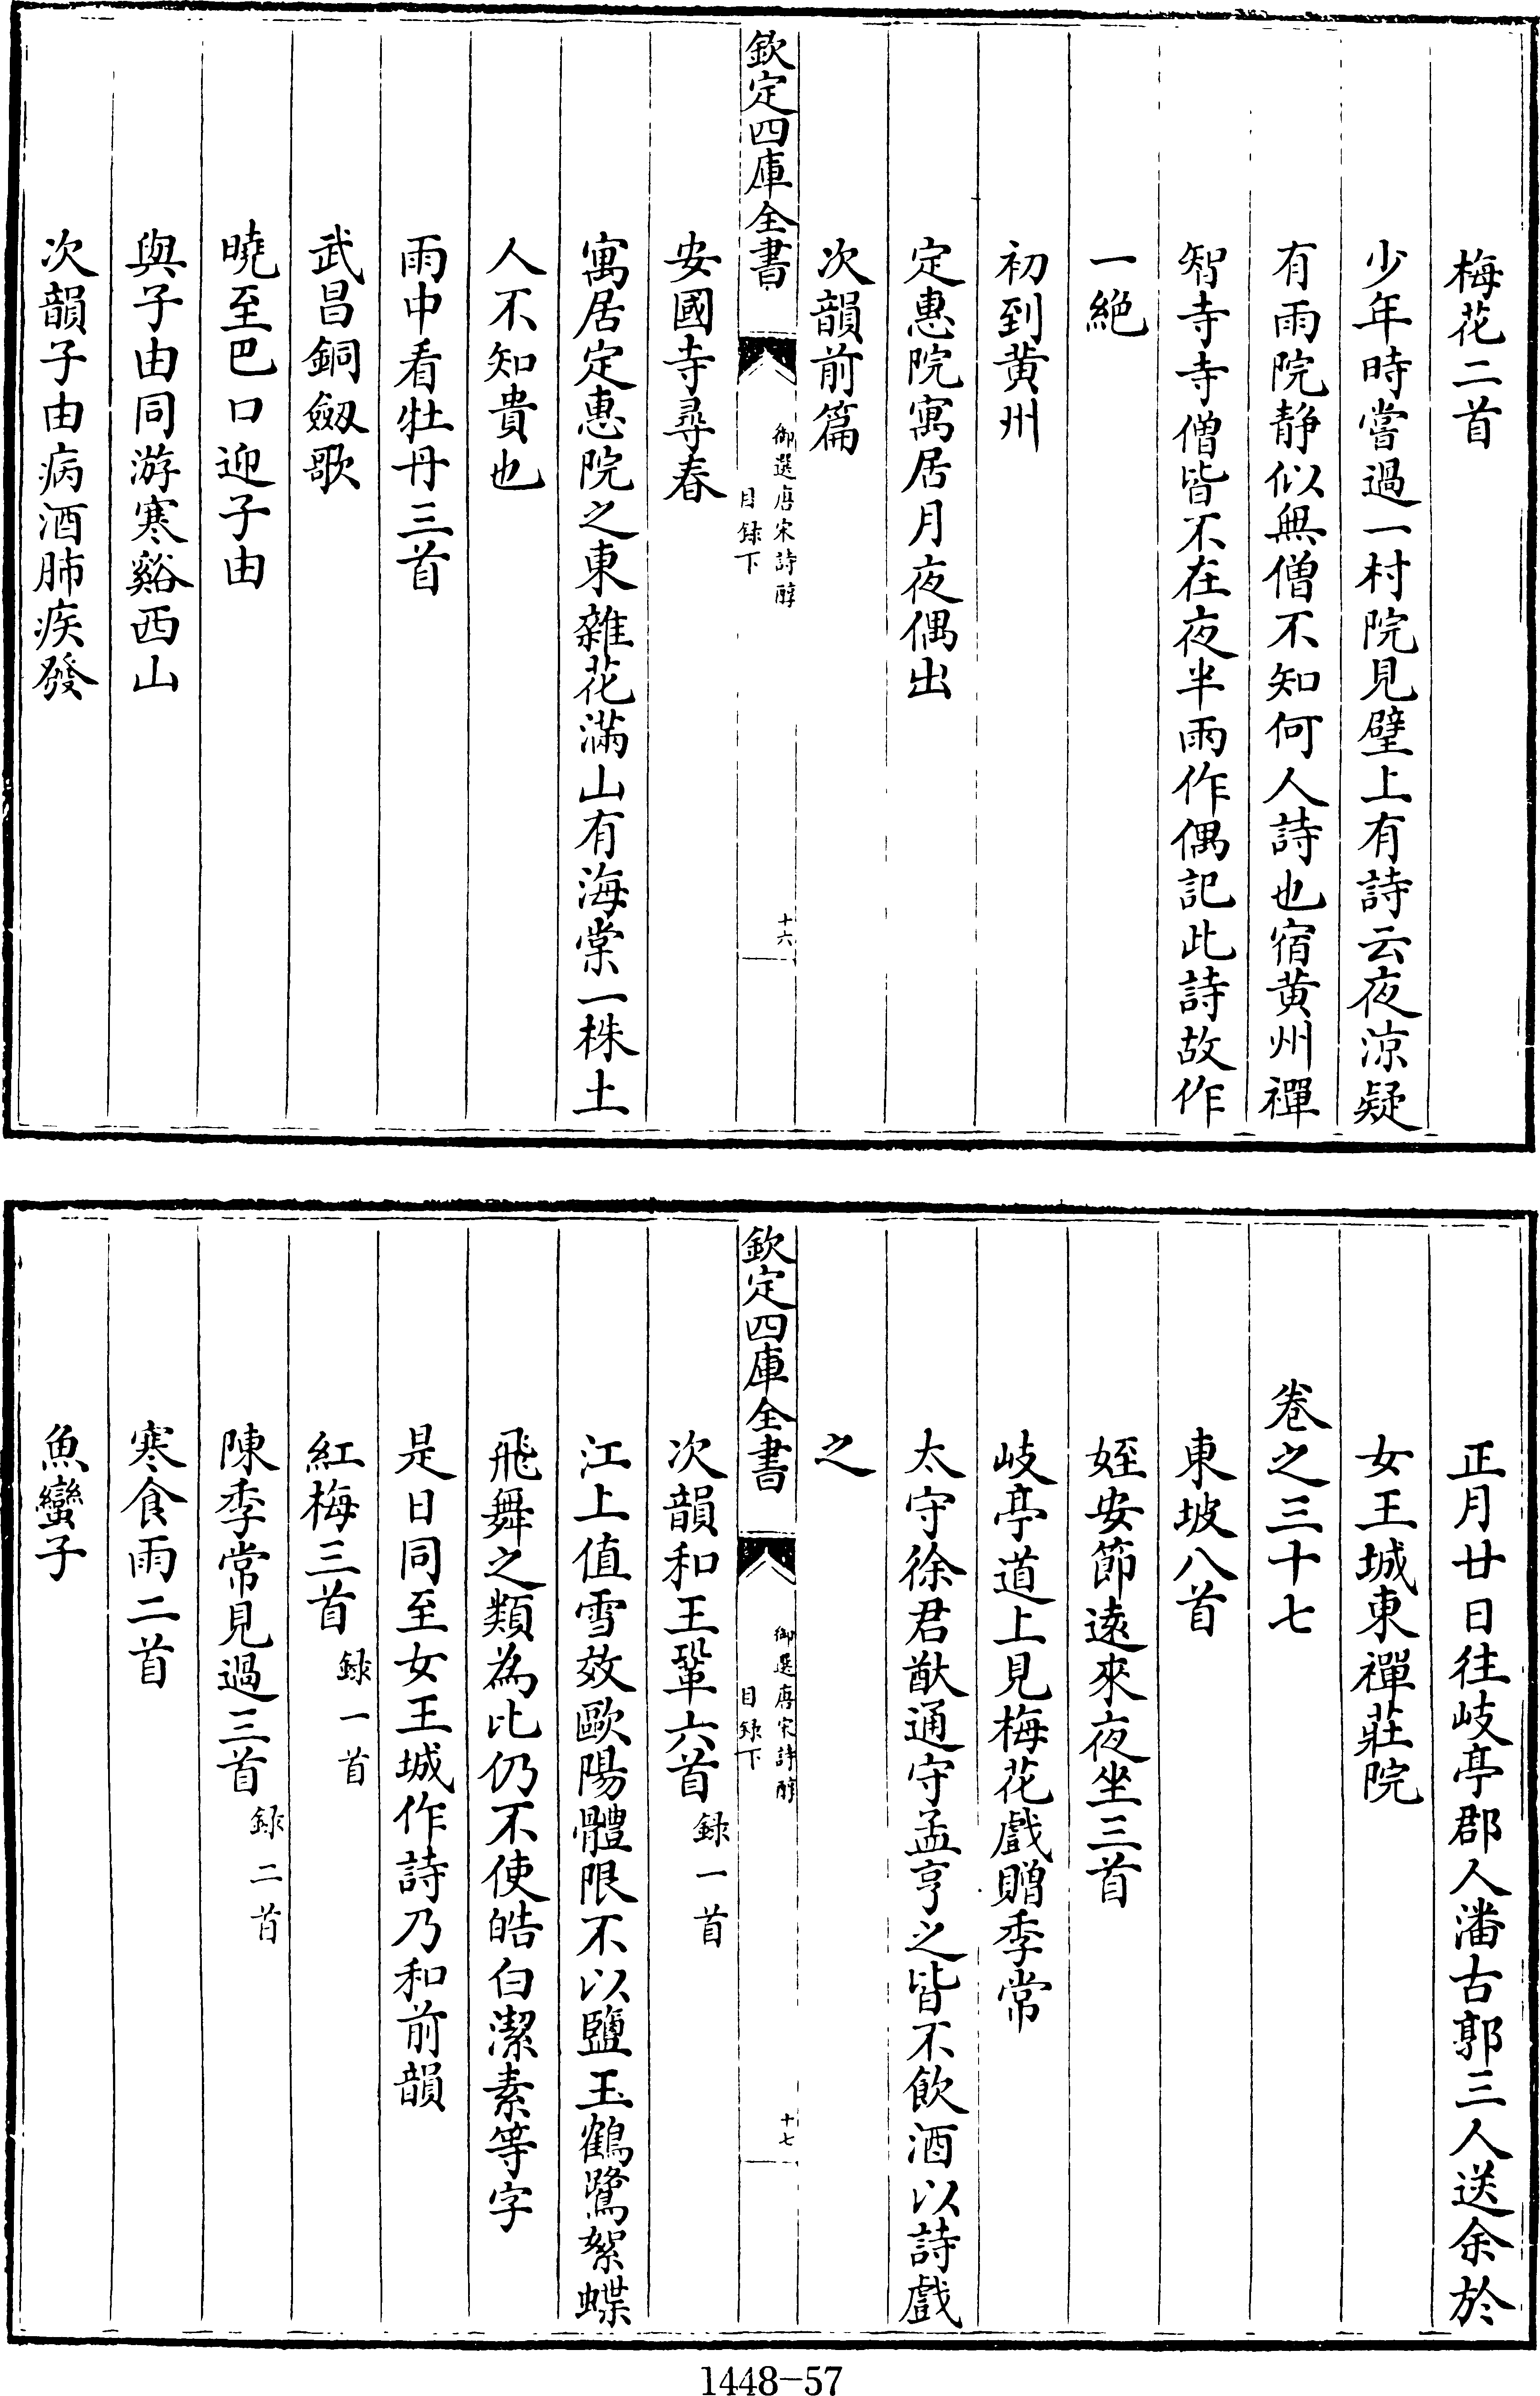 梅花二首
少年時嘗過一村院見壁上有詩云夜涼疑
有雨院静似無僧不知何人詩也宿黄州禪
智寺寺僧皆不在夜半雨作偶記此詩故作
一絶
初到黄州
定惠院寓居月夜偶出
次韻前篇
欽定四庫全書
御選唐宋詩醇
目録下
十六
安國寺尋春
寓居定惠院之東雜花滿山有海棠一株土
人不知貴也
雨中看牡丹三首
武昌銅劔歌
曉至巴口迎子由
與子由同游寒谿西山
次韻子由病酒肺疾發
正月廿日往岐亭郡人潘古郭三人送余於
女王城東禪莊院
卷之三十七
東坡八首
姪安節遠來夜坐三首
岐亭道上見梅花戲贈季常
太守徐君猷通守孟亨之皆不飲酒以詩戲
之
欽定四庫全書
御選唐宋詩醇
目録下
十七
次韻和王鞏六首録一首
江上值雪效歐陽體限不以鹽玉鶴鷺絮蝶
飛舞之類為比仍不使皓白潔素等字
是日同至女王城作詩乃和前韻
紅梅三首録一首
陳季常見過三首録二首
寒食雨二首
魚蠻子
1448-57